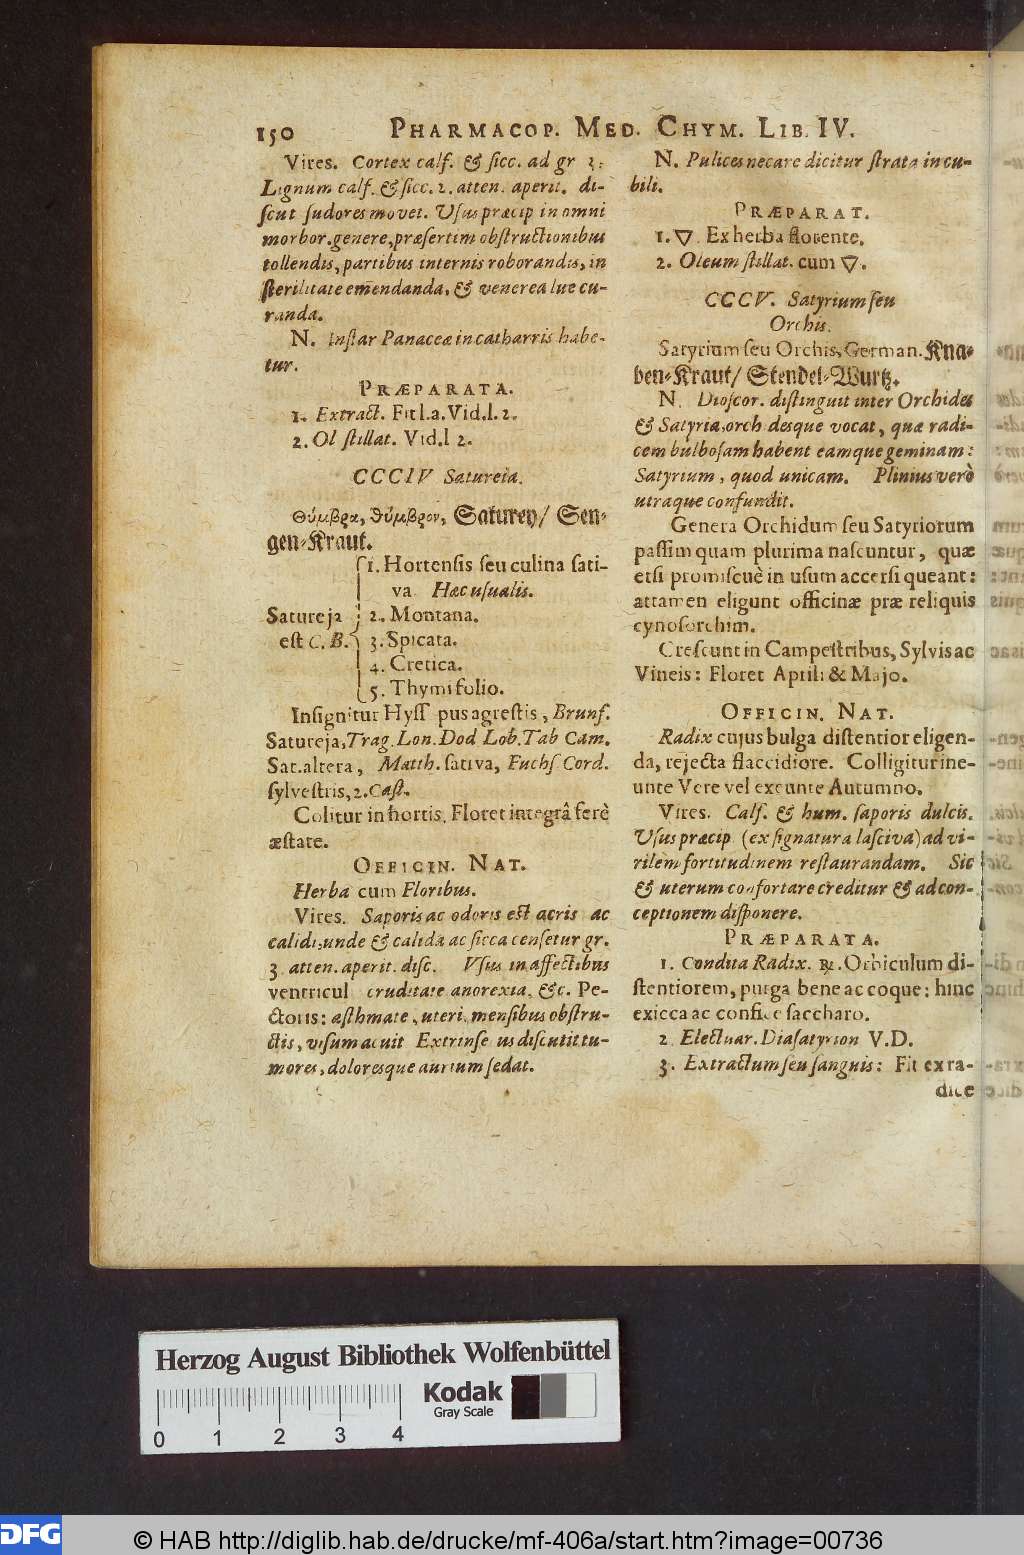 150 PHARMACOP. MED. CHYM. LIB. IV.
Vires. Cortex calf. & ſicc. ad gr 3.
Lignum calf. & ſicc. 2. atten. aperit. di-
ſcut ſudores movet. Uſus præcip in omni
morbor. genere, præſertim obſtructionibus
tollendis, partibus internis roborandis, in
ſterilitate emēndanda, & venerea lue cu-
randa.
N. Inſtar Panaceæ in catharris habe-
tur.
PRÆPARATA.
1. Extract. Fit l.a. Vid. l. 2.
2. Ol ſtillat. Vid. l 2.
CCCIV Satureia.
Θύμβρα, θύμβρον, Saturey/ Sen-
gen-Kraut.
1. Hortenſis ſeu culina ſati-
va Hæc uſualis.
Satureja 2. Montana.
eſt C. B. 3. Spicata.
4. Cretica.
5. Thymifolio.
Inſignitur Hyſſ pus agreſtis, Brunf.
Satureja, Trag. Lon. Dod Lob. Tab Cam.
Sat. altera, Matth. ſativa, Fuchſ Cord.
ſylveſtris, 2. Caſt.
Colitur in hortis. Floret integrâ ferè
æſtate.
OFFICIN. NAT.
Herba cum Floribus.
Vires. Saporis ac odoris eſt acris ac
calidi: unde & calida ac ſicca cenſetur gr.
3 atten. aperit. diſc. Uſus in affectibus
ventricul cruditate anorexia. &c. Pe-
ctoris: aſthmate, uteri, menſibus obſtru-
ctis, viſum acuit Extrinſe us diſcutit tu-
mores, doloresque aurium ſedat.
N. Pulices necare dicitur ſtrata in cu-
bili.
PRÆPARAT.
1. 🜄. Ex herba florente.
2. Oleum ſtillat. cum 🜄.
CCCV. Satyrium ſeu
Orchis.
Satyrium ſeu Orchis, German. Kna-
ben-Kraut/ Stendel-Wurtz.
N. Dioſcor. diſtinguit inter Orchides
& Satyria, orch desque vocat, quæ radi-
cem bulboſam habent eamque geminam:
Satyrium, quod unicam. Plinius verò
utraque confundit.
Genera Orchidum ſeu Satyriorum
paſſim quam plurima naſcuntur, quæ
etſi promiſcuè in uſum accerſi queant:
attamen eligunt officinæ præ reliquis
cynoſorchim.
Creſcunt in Campeſtribus, Sylvis ac
Vineis: Floret Aprili & Majo.
OFFICIN. NAT.
Radix cujus bulga diſtentior eligen-
da, rejecta flaccidiore. Colligitur ine-
unte Vere vel exeunte Autumno.
Vires. Calf. & hum. ſaporis dulcis.
Uſus præcip (ex ſignatura laſciva) ad vi-
rilem fortitudinem reſtaurandam. Sic
& uterum confortare creditur & ad con-
ceptionem diſponere.
PRÆPARATA.
1. Condita Radix. ℞. Orbiculum di-
ſtentiorem, purga bene ac coque: hinc
exicca ac confice ſaccharo.
2 Electuar. Diaſatyrion V.D.
3. Extractum ſeu ſanguis: Fit ex ra-
dice
Herzog August Bibliothek Wolfenbüttel
Kodak
Gray Scale
0 1 2 3 4
DFG © HAB http://diglib.hab.de/drucke/mf-406a/start.htm?image=00736